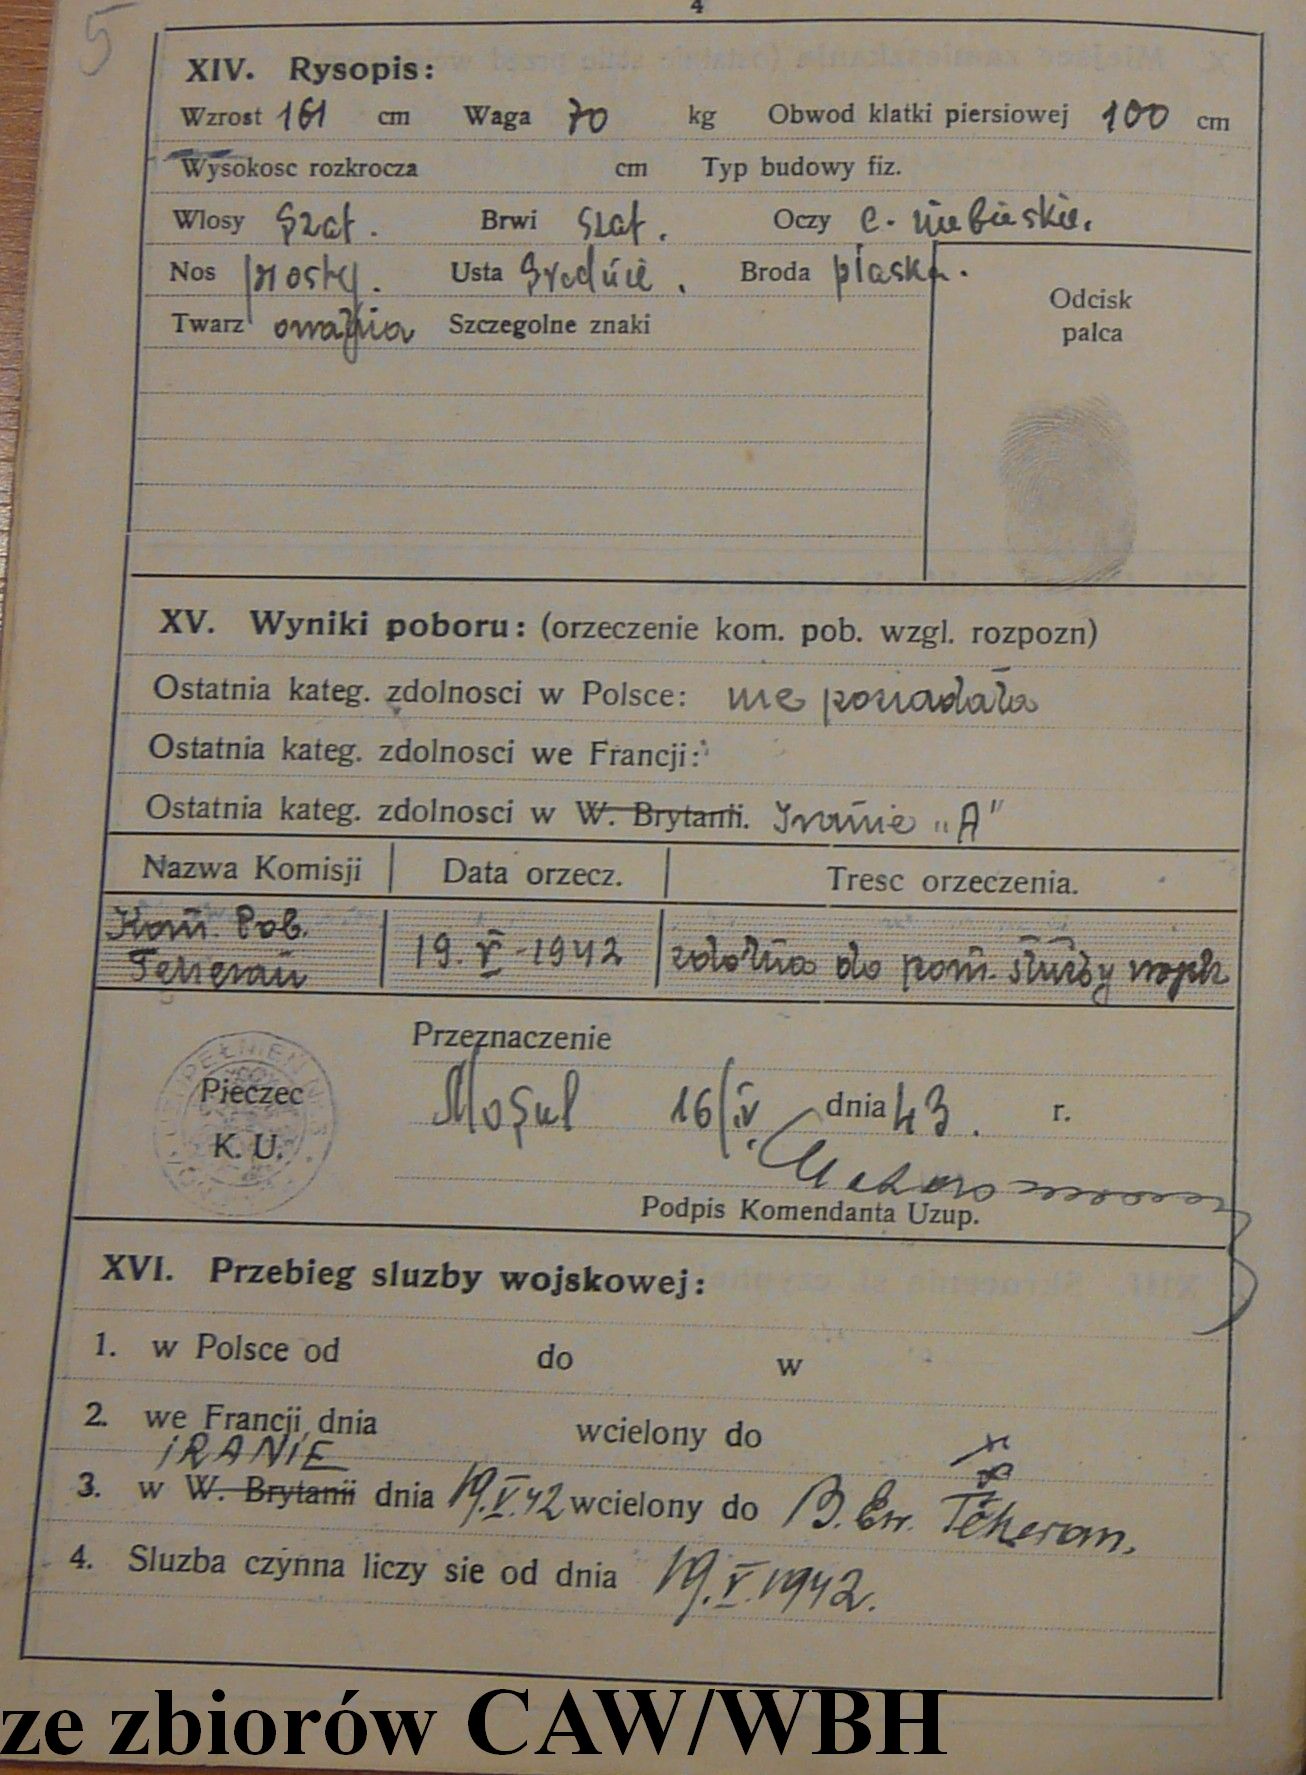 4
5
XIV. Rysopis:
Wzrost 161 cm Waga 70 kg Obwod klatki piersiowej 100 cm
Wysokosc rozkrocza cm Typ budowy fiz.
Wlosy szat. Brwi szat. Oczy c. niebieskie.
Nos prosty. Usta średnie. Broda płaska.
Twarz owalna Szczegolne znaki
Odcisk
palca
XV. Wyniki poboru: (orzeczenie kom. pob. wzgl. rozpozn)
Ostatnia kateg. zdolnosci w Polsce: nie posiadała
Ostatnia kateg. zdolnosci we Francji:
Ostatnia kateg. zdolnosci w W. Brytanii. Iranie „A"
Nazwa Komisji Data orzecz. Tresc orzeczenia.
Kom. Pob.
Teheran 19. V-1942 zdolna do pom. służby wojsk
Przeznaczenie
Pieczec
K. U.
Mosul 16/IV. dnia 43. r.
Podpis Komendanta Uzup.
XVI. Przebieg sluzby wojskowej:
1. w Polsce od do w
2. we Francji dnia wcielony do
IRANIE
3. w W. Brytanii dnia 19.V.42 wcielony do B. Ew. Teheran.
4. Sluzba czynna liczy sie od dnia 19.V.1942.
ze zbiorów CAW/WBH